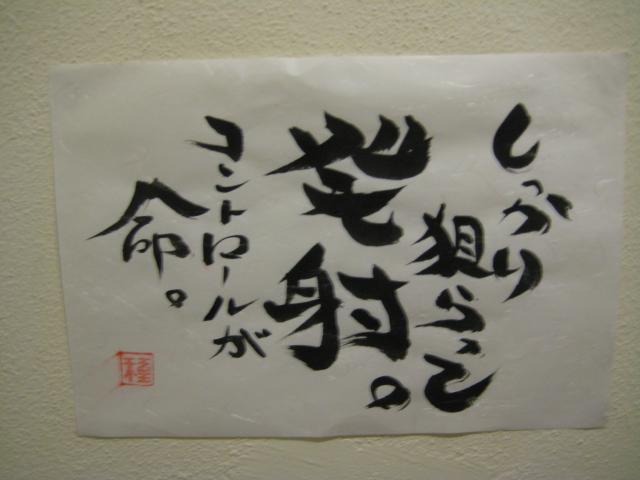 しっかり
狙らって
発射。
コントロールが
命。